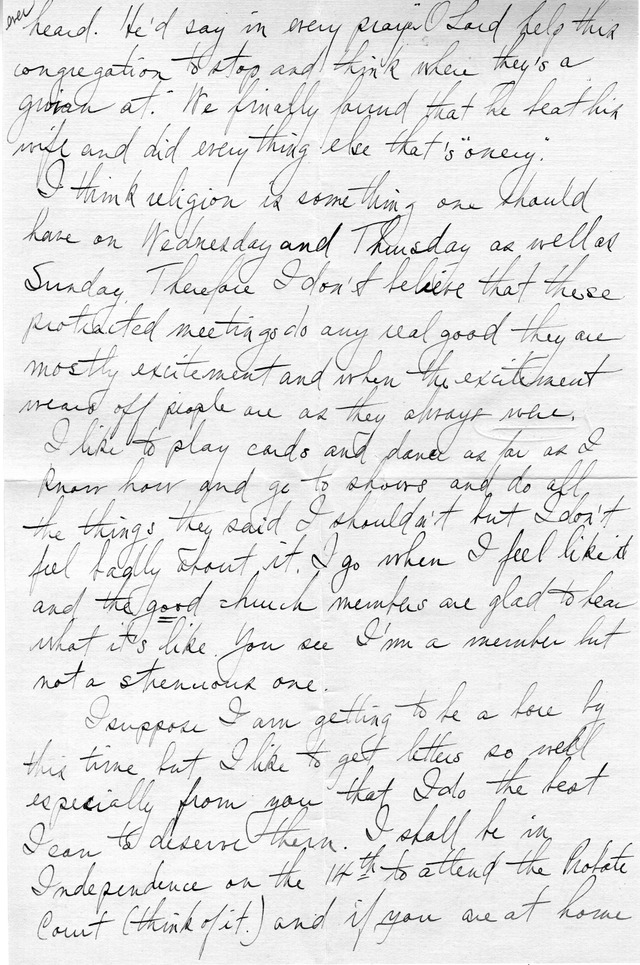 ever heard. He'd say in every prayer "O Lord help this
congregation to stop and think where they's a
going at." We finally found that he beat his
wife and did everything else that's "onery".
I think religion is something one should
have on Wednesday and Thursday as well as
Sunday. Therefore I don't believe that these
protracted meetings do any real good they are
mostly excitement and when the excitement
wears off people are as they always were.
I like to play cards and dance as far as I
know how and go to shows and do all
the things they said I shouldn't but I don't
feel badly about it. I go when I feel like it
and the good church members are glad to hear
what it's like. You see I'm a member but
not a strenuous one.
I suppose I am getting to be a bore by
this time but I like to get letters so well
especially from you that I do the best
I can to deserve them. I shall be in
Independence on the 14th to attend the Probate
Court (think of it.) and if you are at home